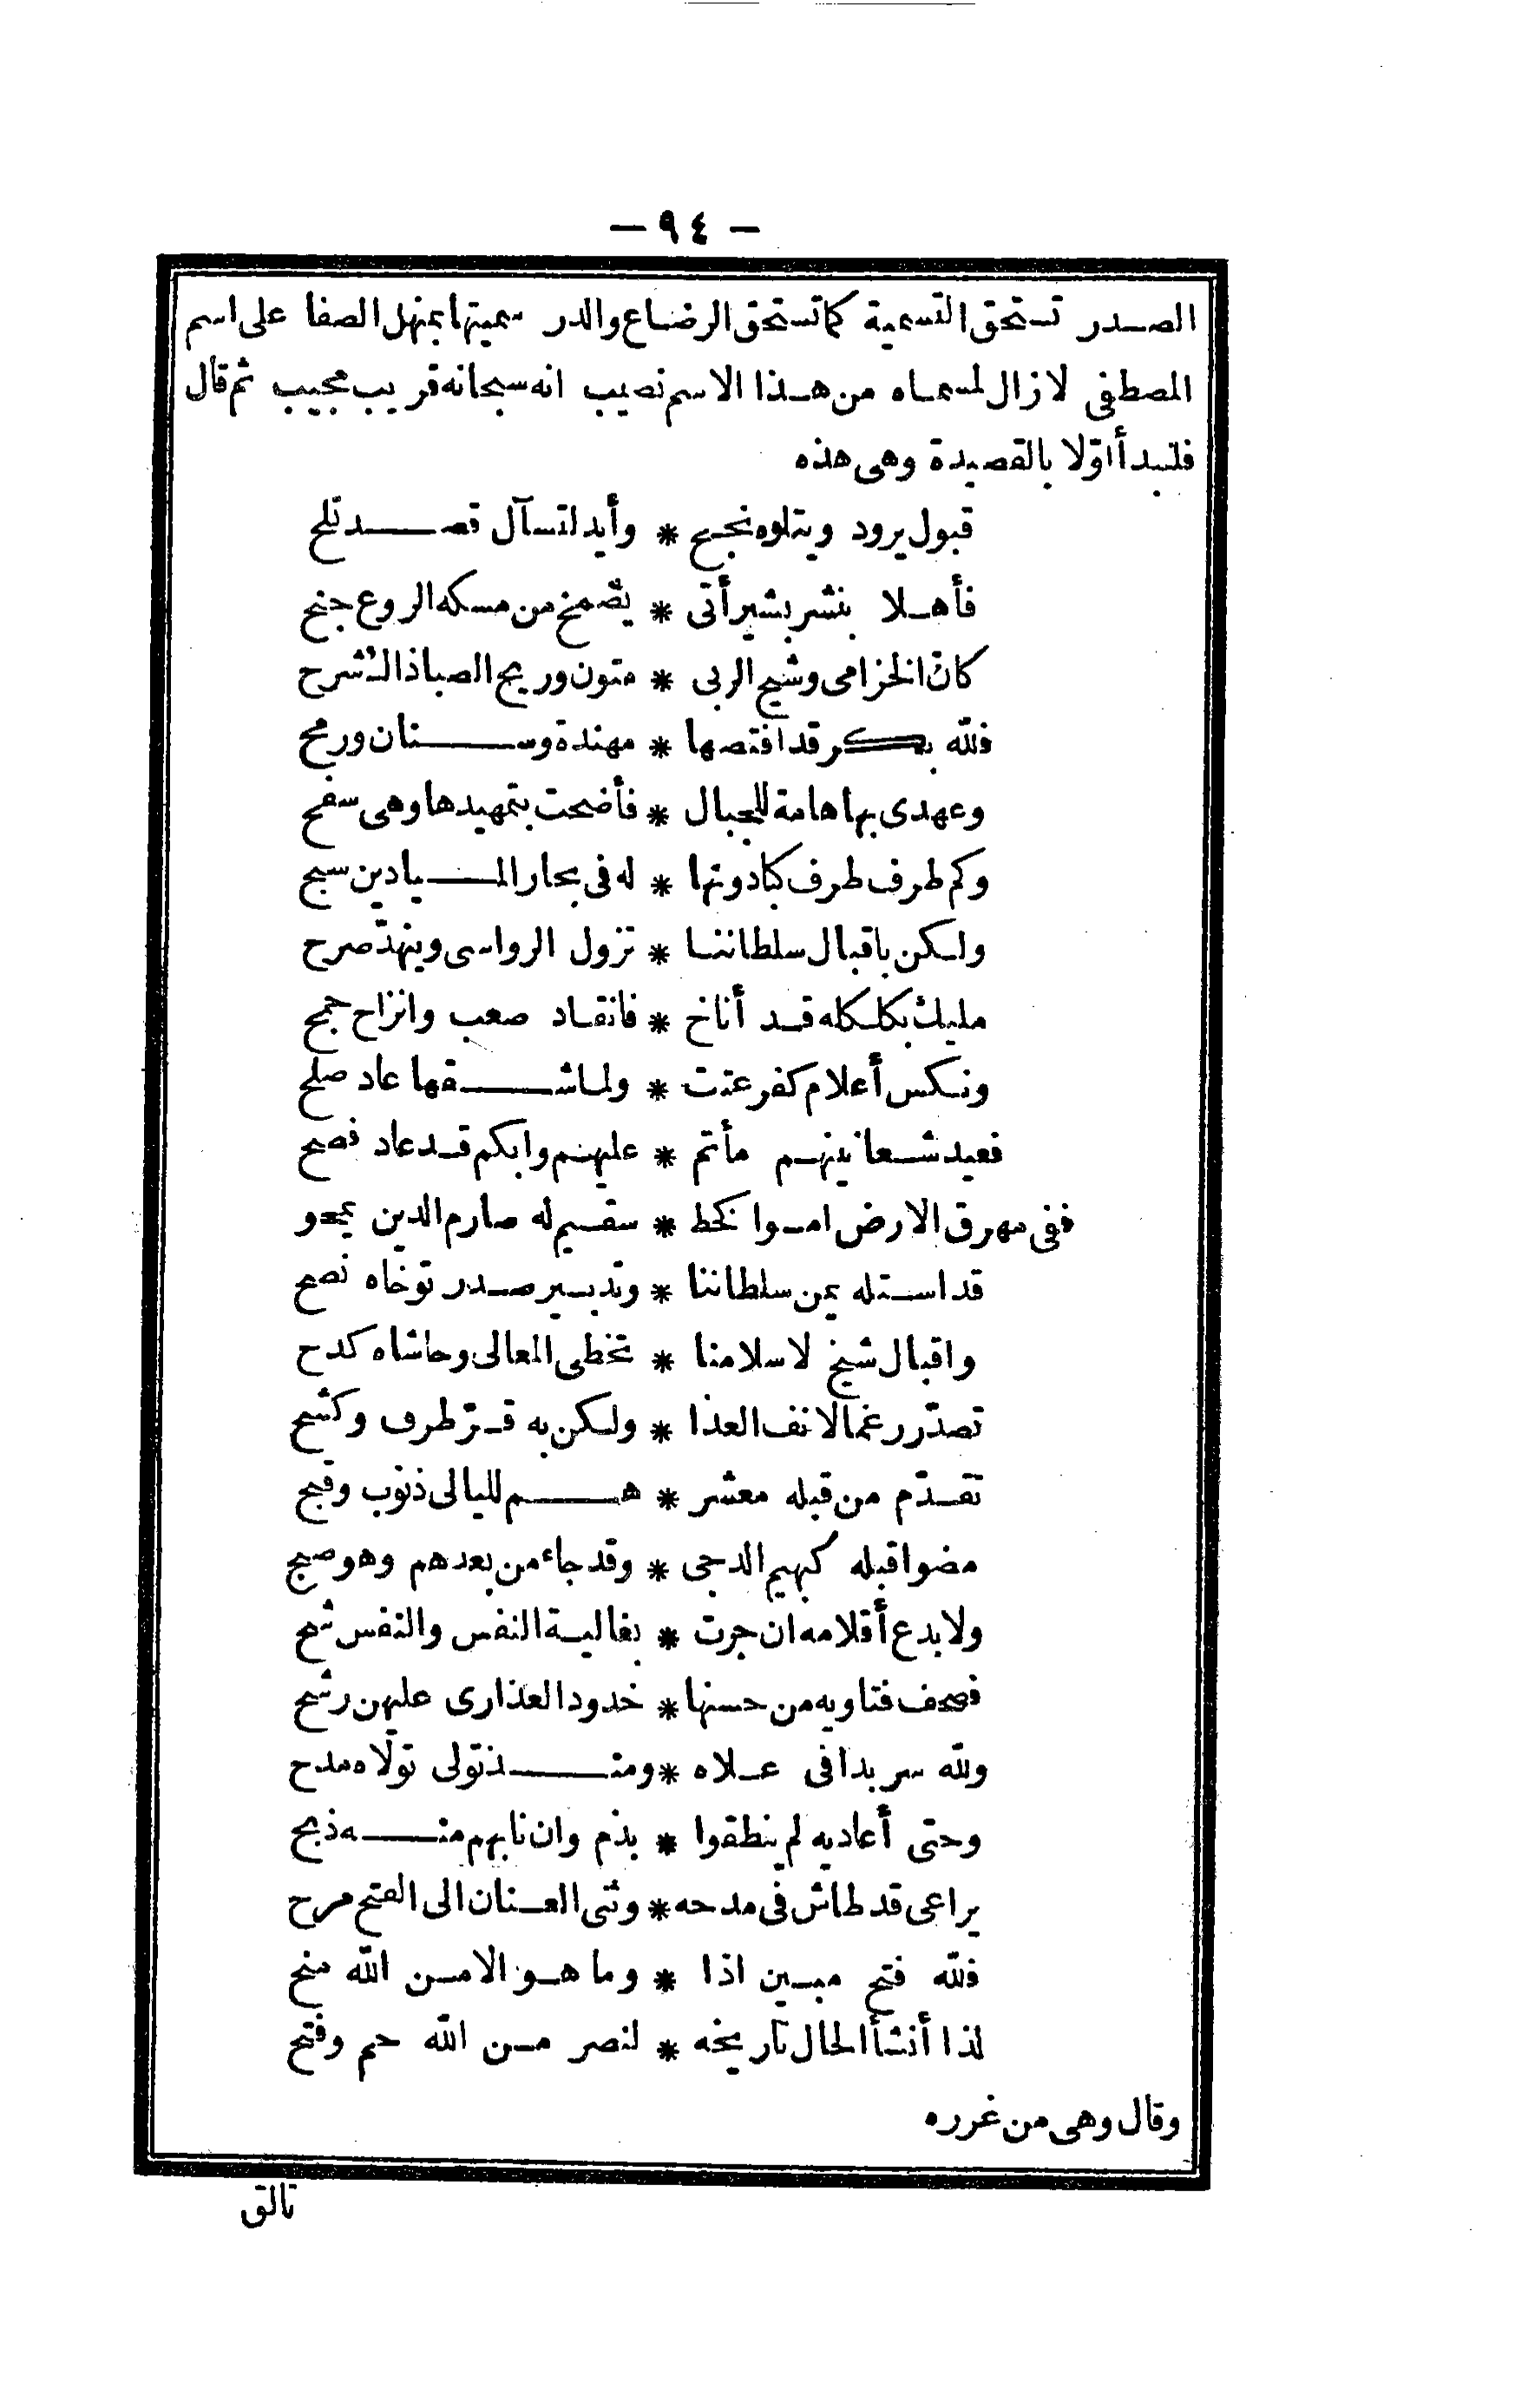 — ٩٤ —
الصدر تستحق التسمية كما تستحق الرضاع والدر سميتها بمنهل الصفا على اسم
المصطفى لازال لمسماه من هذا الاسم نصيب انه سبحانه قريب مجيب ثم قال
فلنبدأ اوّلا بالقصيدة وهى هذه
قبول يرود ويتلوه نجح * وأيد لتسآل قصد تلح
فأهلا بنشر بشير أتى * يضمخ من مسكه الروع جنح
كانّ الخزامى وشيح الربى * متون وريح الصبا ذا لشرح
فلله بكر قد افتضها * مهندة وسنان ورمح
وعهدى بها هامة للجبال * فأضحت بتمهيدها وهى سفح
وكم طرف طرف كبا دونها * له فى بحار الميادين سبح
ولكن باقبال سلطاننا * تزول الرواسى وينهدّ صرح
مليك بكلكله قد أناخ * فانقاد صعب وانزاح جمح
ونكس أعلام كفر عتت * ولما شقها عاد صلح
فعيد شعانينهم مأتم * عليهم وابكم قد عاد فصح
ففى مهرق الارض امسوا كخط * سقيم له صارم الدين يمحو
قد استله يمن سلطاننا * وتدبير صدر توخاه نصح
واقبال شيخ لاسلامنا * تخطى المعالى وحاشاه كدح
تصدّر رغما لانف العذا * ولكن به قرّ طرف وكشح
تقدّم من قبله معشر * هم لليالى ذنوب وقبح
مضوا قبله كبهيم الدجى * وقد جاء من بعدهم وهو صبح
ولا بدع أقلامه ان جرت * بغالية النفس والنفس شح
فصحف فتاويه من حسنها * خدود العذارى عليهن رشح
ولله سر بدا فى علاه * ومنذ تولى تولّاه مدح
وحتى أعاديه لم ينطقوا * بذم وان نابهم منه ذبح
يراعى قد طاش فى مدحه * وثنى العنان الى الفتح مرح
فلله فتح مبين اذا * وما هو الا من الله منح
لذا أنشأ الحال تاريخه * لنصر من الله حم وفتح
وقال وهى من غرره
تالق